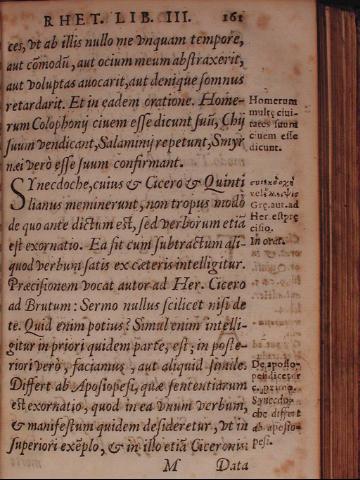 RHET. LIB. III. 161
ces, vt ab illis nullo me vnquam tempore,
aut cōmodū, aut ocium meum abſtraxerit,
aut voluptas auocarit, aut denique ſomnus
retardarit. Et in eadem oratione. Home-
rum Colophonij ciuem eſſe dicunt ſuū, Chij
ſuum vendicant, Salaminij repetunt, Smyr
nei verò eſſe ſuum confirmant.
Homerum
multę ciui-
tates ſuum
ciuem eſſe
dicunt.
SYnecdoche, cuius & Cicero & Quinti
lianus meminerunt, non tropus modò
de quo ante dictum eſt, ſed verborum etiā
eſt exornatio. Ea fit cum ſubtractum ali-
quod verbum ſatis ex cæteris intelligitur.
Præciſionem vocat autor ad Her. Cicero
ad Brutum: Sermo nullus ſcilicet niſi de
te. Quid enim potius? Simul enim intelli-
gitur in priori quidem parte, eſt; in poſte-
riori verò, faciamus, aut aliquid ſimile.
Differt ab Apoſiopeſi, quæ ſententiarum
eſt exornatio, quod in ea vnum verbum,
& manifeſtum quidem deſideretur, vt in
ſuperiori exēplo, & in illo etiā Ciceronis:
Grę. aut. ad
Her. eſt prę
ciſio.
In orat.
Synecdo-
che differt
ab apoſio-
peſi.
M Data